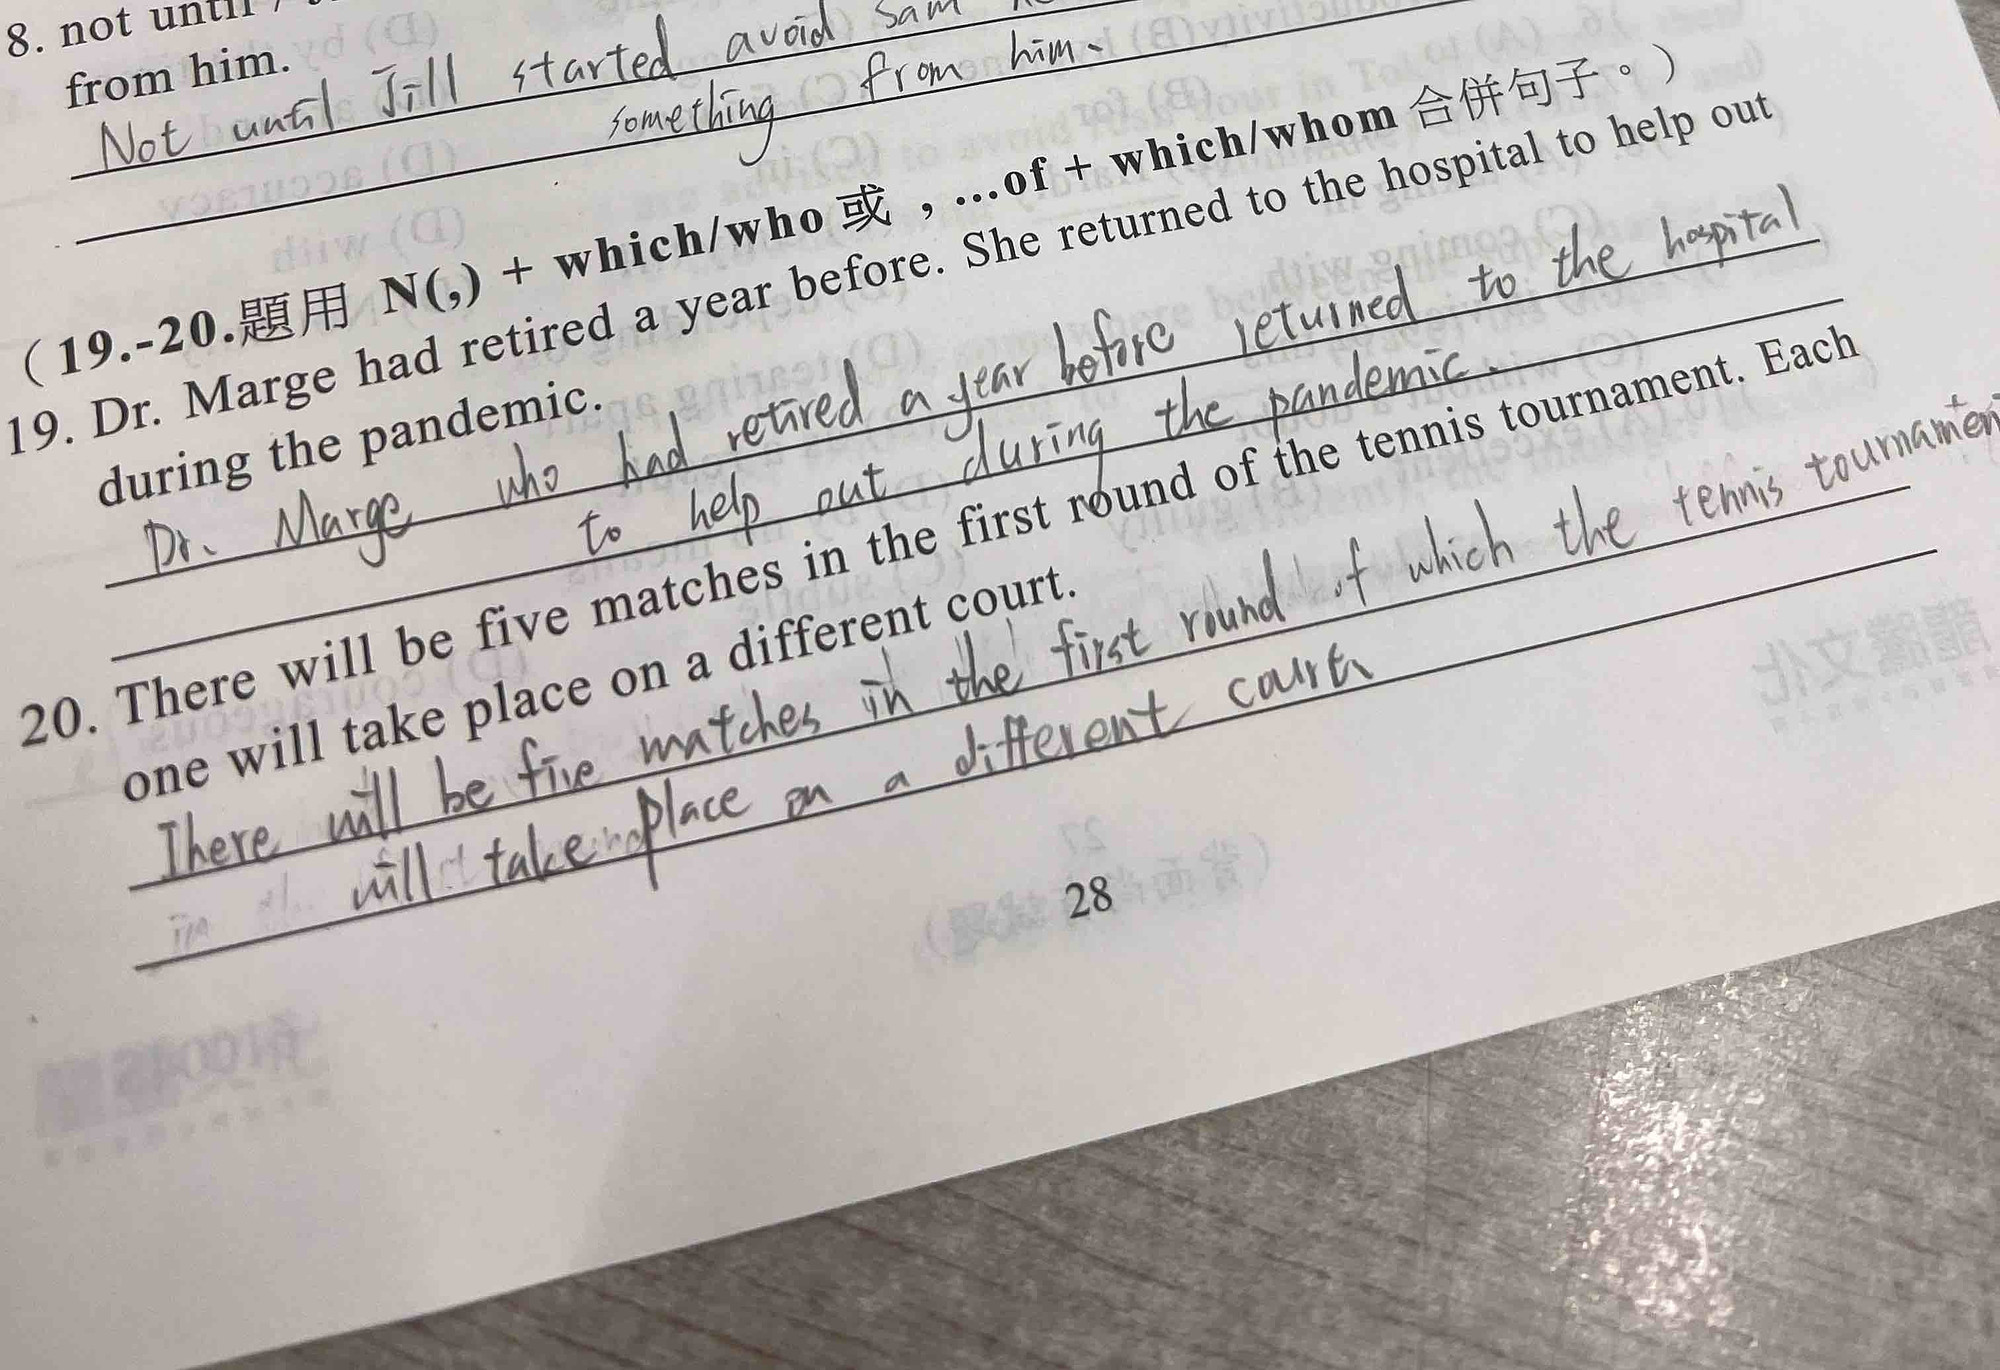 8. not until /
from him.
Not until Jill started avoid Sam
something from him.
（19.-20.題用 N(,) + which/who 或 , ...of + which/whom 合併句子。）
19. Dr. Marge had retired a year before. She returned to the hospital to help out
during the pandemic.
Dr. Marge who had retired a year before returned to the hospital
to help out during the pandemic.
20. There will be five matches in the first round of the tennis tournament. Each
one will take place on a different court.
There will be five matches in the first round of which the tennis tournament
will take place on a different court.
28